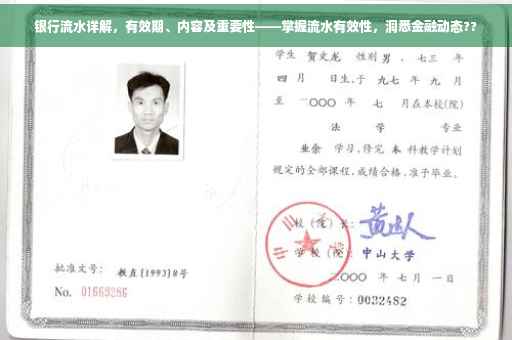 银行流水详解，有效期、内容及重要性——掌握流水有效性，洞悉金融动态??
学生 贺文龙 性别 男 、七三 年
四 月 日生,于 九七 年 九 月
至 二〇〇〇 年 七 月在本校(院)
法 学 专业
业余 学习,修完 本 科教学计划
规定的全部课程,成绩合格,准予毕业。
校 (院) 长:
学 校 (院): 中山大学
二〇〇〇 年 七 月 一 日
学校编号: 0032482
批准文号: 教直[1993]8号
No. 01669286